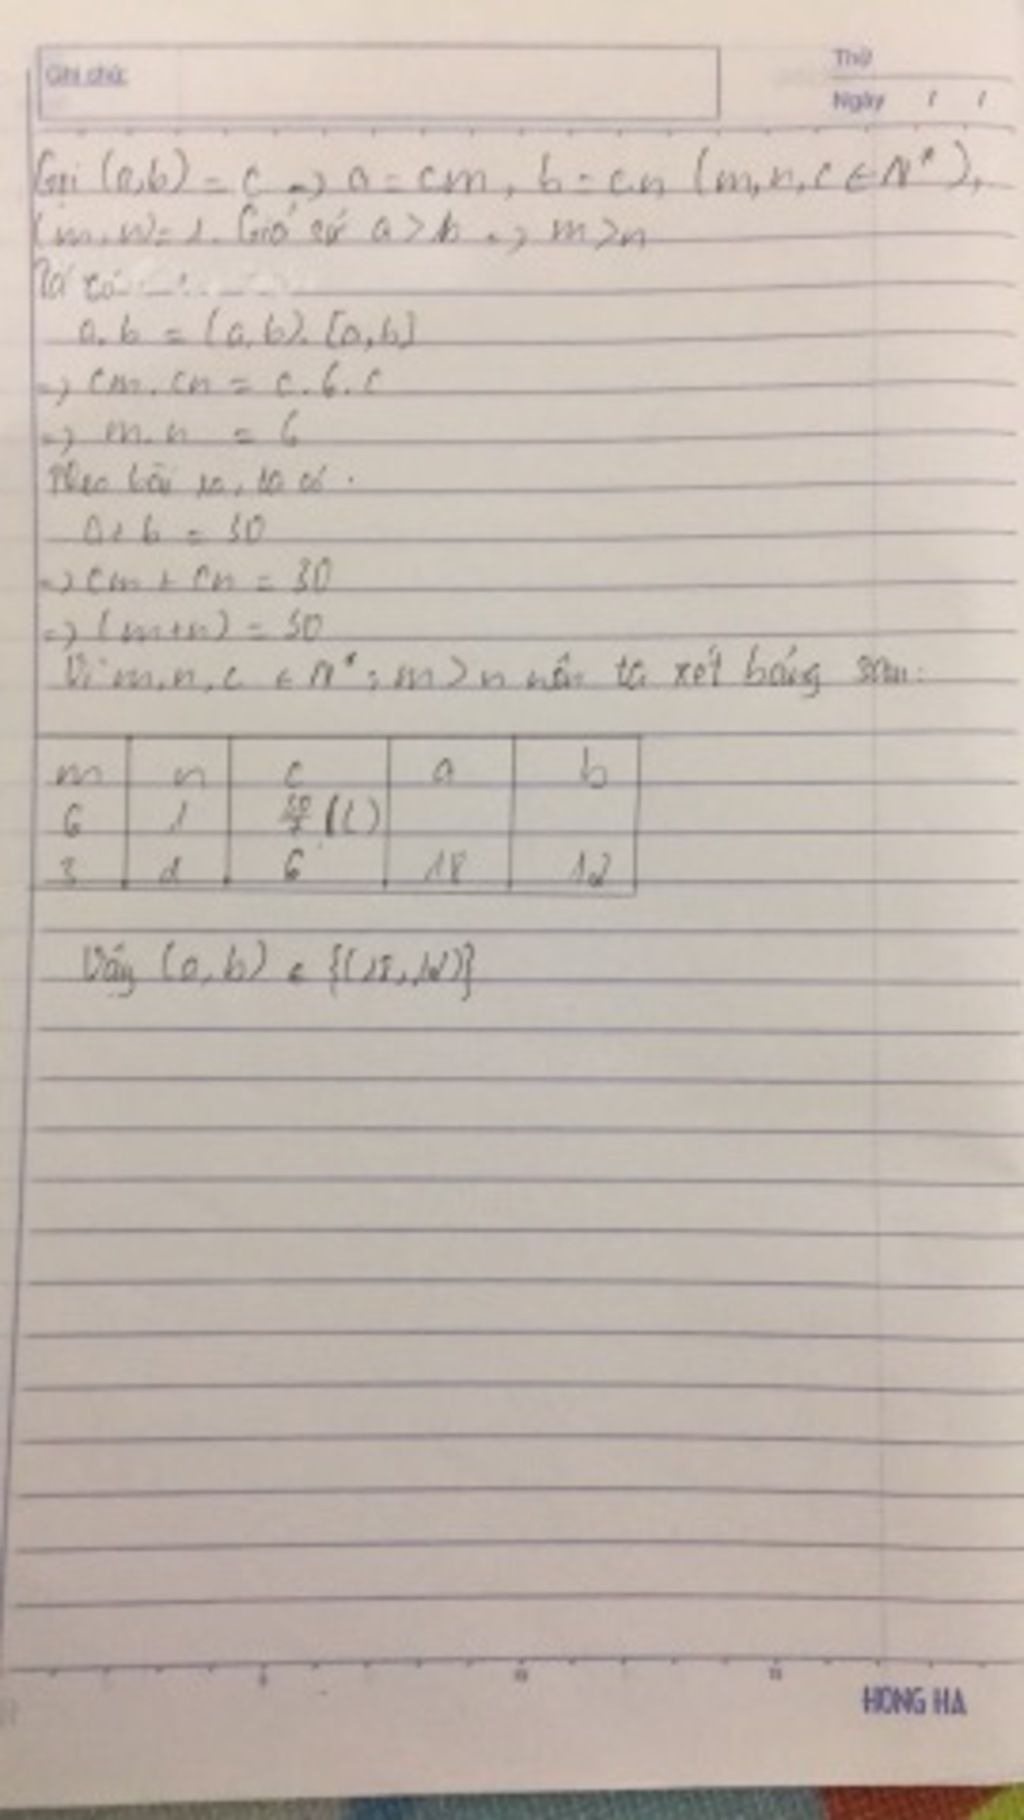 Ghi chú:
Thứ
Ngày / /
Gọi (a,b) = c => a = cm, b = cn (m,n,c ∈ N*),
(m,n)=1. Giả sử a > b => m > n
Ta có
a.b = (a,b).[a,b]
=> cm.cn = c.6.c
=> m.n = 6
Theo bài ra, ta có:
a+b = 30
=> cm + cn = 30
=> (m+n) = 30
Vì m,n,c ∈ N*; m > n nên ta xét bảng sau:
m n c a b
6 1 30/7 (L)
3 2 6 18 12
Vậy (a,b) ∈ {(18,12)}
HONG HA